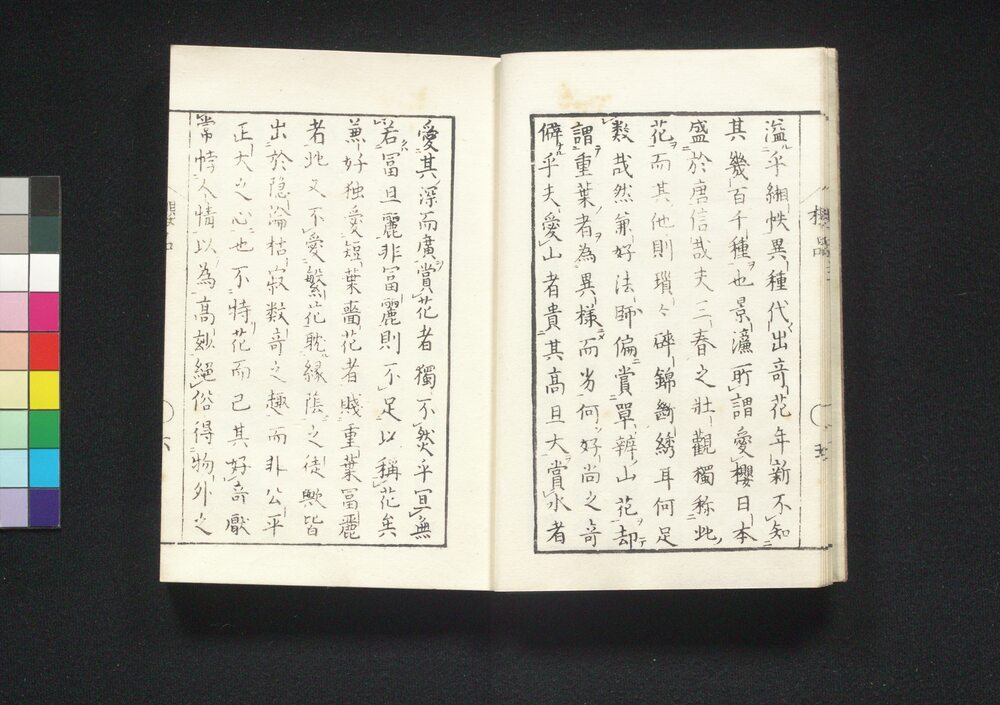 溢乎緗帙異種代出奇花年新不知
其幾百千種也景濂所謂愛櫻日本
盛於唐信哉夫三春之壯觀獨称此
花而其他則瑣々碎錦斷綉耳何足
数哉然兼好法師偏賞單辨山花却
謂重葉者為異樣而劣何好尚之奇
僻乎夫愛山者貴其高且大賞水者
愛其深而廣賞花者獨不然乎冝無
若冨且麗非冨麗則不足以稱花矣
兼好独愛短葉嗇花者賎重葉冨麗
者此又不愛繁花耽緑陰之徒歟皆
出於隐淪枯寂数奇之趣而非公平
正大之心也不特花而已其好奇厭
常悖人情以為高玅絕俗得物外之
櫻品